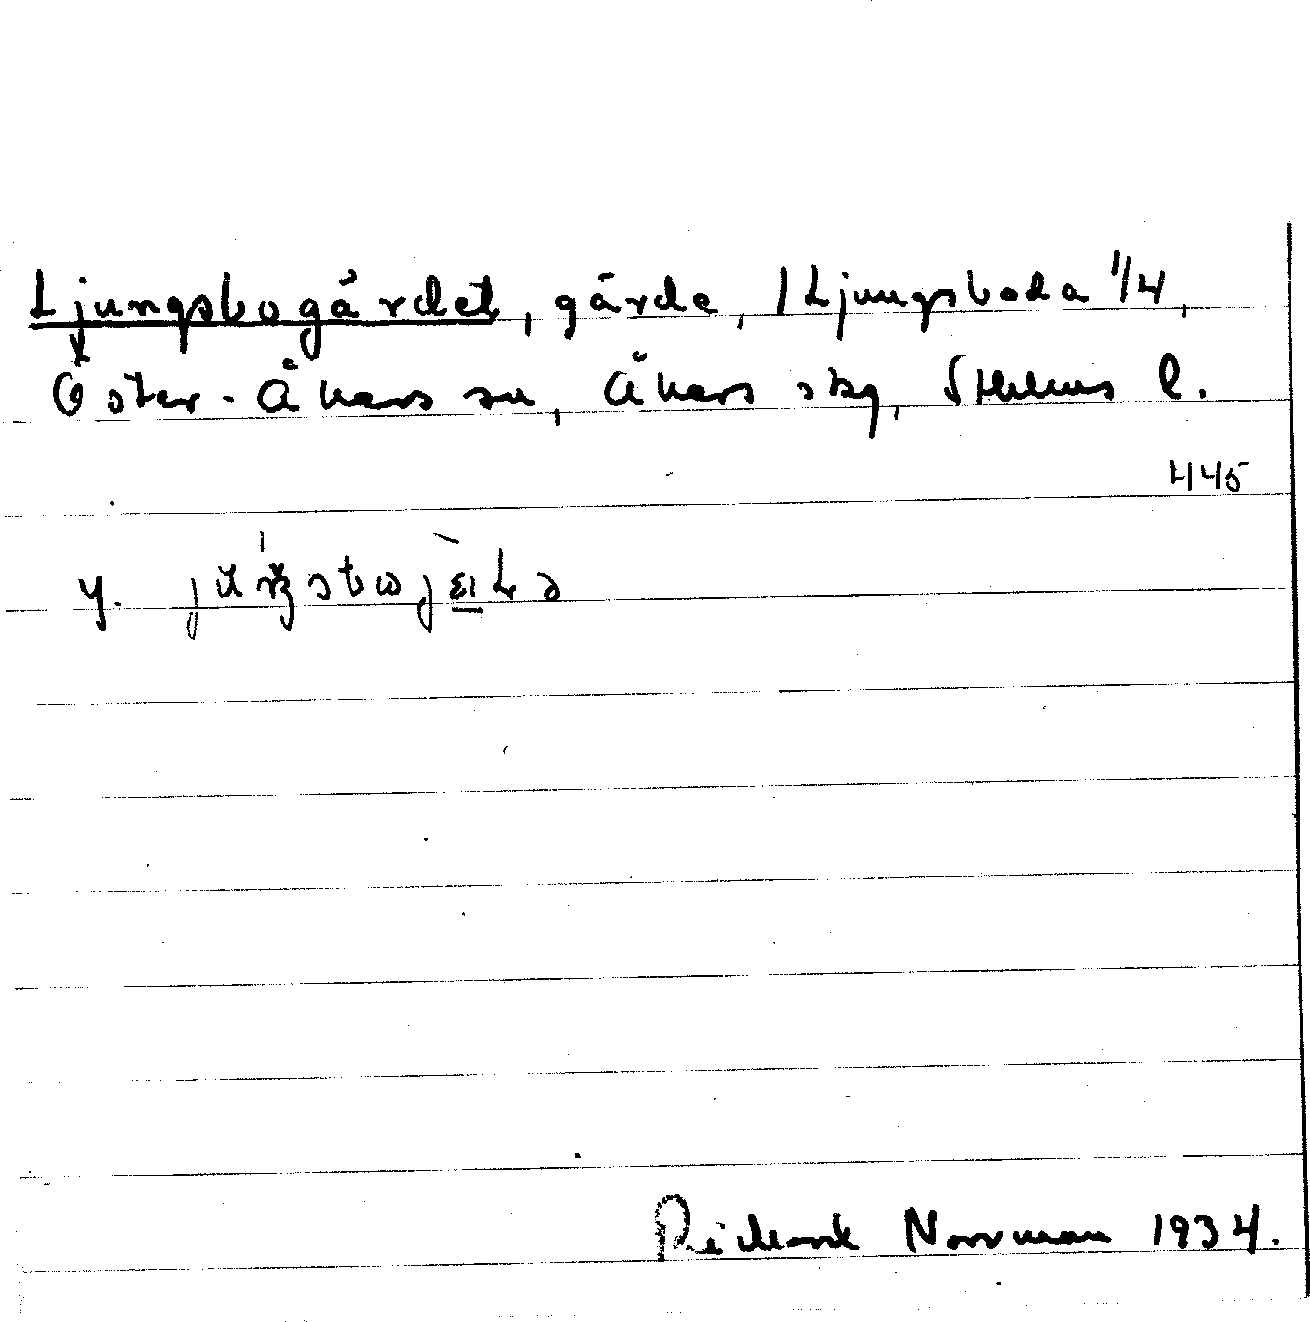 Ljungsbogärdet, gärde, 1 Ljungsboda 1/4,
Öster-Åkers sn, Åkers skg, Sthlms l.
445
y.
Richard Norrman 1934.